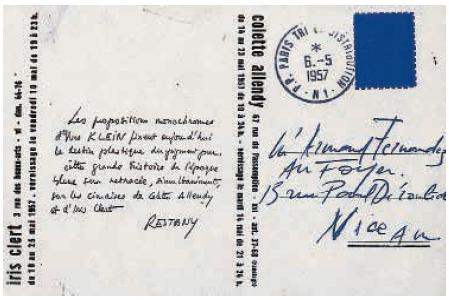 iris clert 3 rue des beaux-arts - vi - dan. 44-76
du 10 au 25 mai 1957, vernissage le vendredi 10 mai de 19 à 23h.
Les propositions monochromes
d'Yves KLEIN fixent aujourd'hui
le destin plastique du pigment pur.
cette grande histoire de l'époque
bleue sera retracée, simultanément,
sur les cimaises de Colette Allendy
et d'Iris Clert
RESTANY
colette allendy 67 rue de l'assomption - xvi - aut. 37-68
du 14 au 23 mai 1957 de 10 à 24h. - vernissage le mardi 14 mai de 21 à 24 h.
P.P. PARIS TRI DISTRIBUTION N1
*
6-5
1957
Mr Armand Fernandez
AU FOYER
13 rue Paul Déroulède
Nice AM